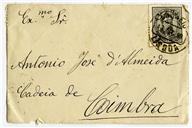 Ex.mo Sr.
Antonio José d'Almeida
Cadeia de
Coimbra